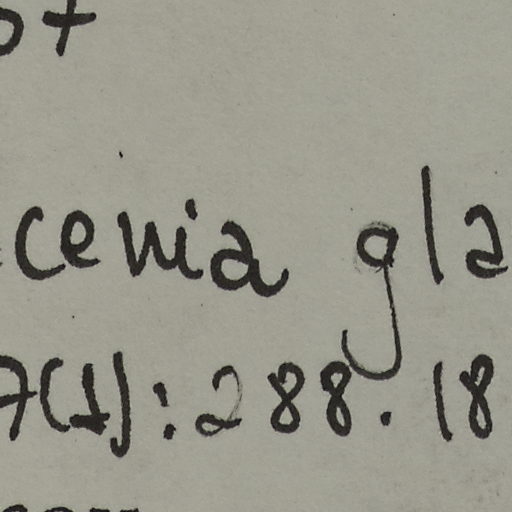 cenia gla
7(1): 288. 18